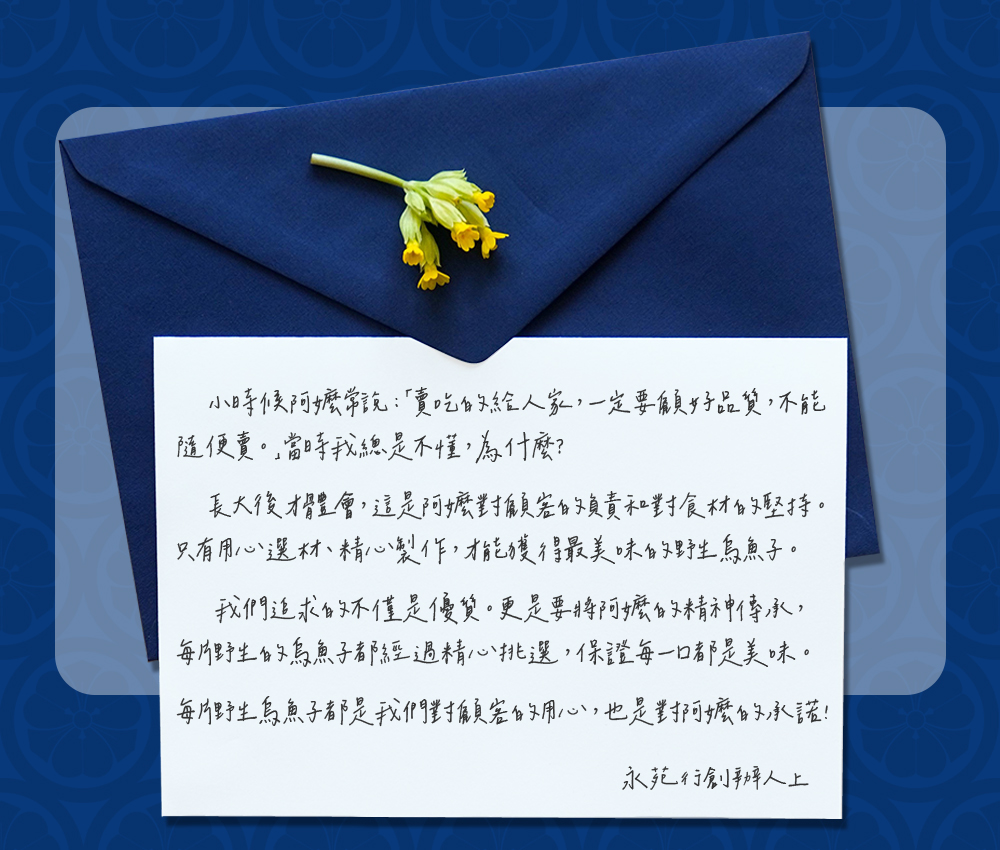 小時候阿嬤常說：「賣吃的給人家，一定要顧好品質，不能
隨便賣。」當時我總是不懂，為什麼？
長大後才體會，這是阿嬤對顧客的負責和對食材的堅持。
只有用心選材、精心製作，才能獲得最美味的野生烏魚子。
我們追求的不僅是優質。更是要將阿嬤的精神傳承，
每片野生的烏魚子都經過精心挑選，保證每一口都是美味。
每片野生烏魚子都是我們對顧客的用心，也是對阿嬤的承諾！
永苑行創辦人上